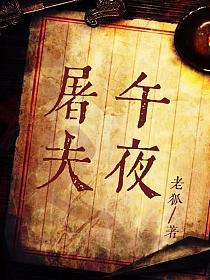 午夜
屠夫
老狐/著